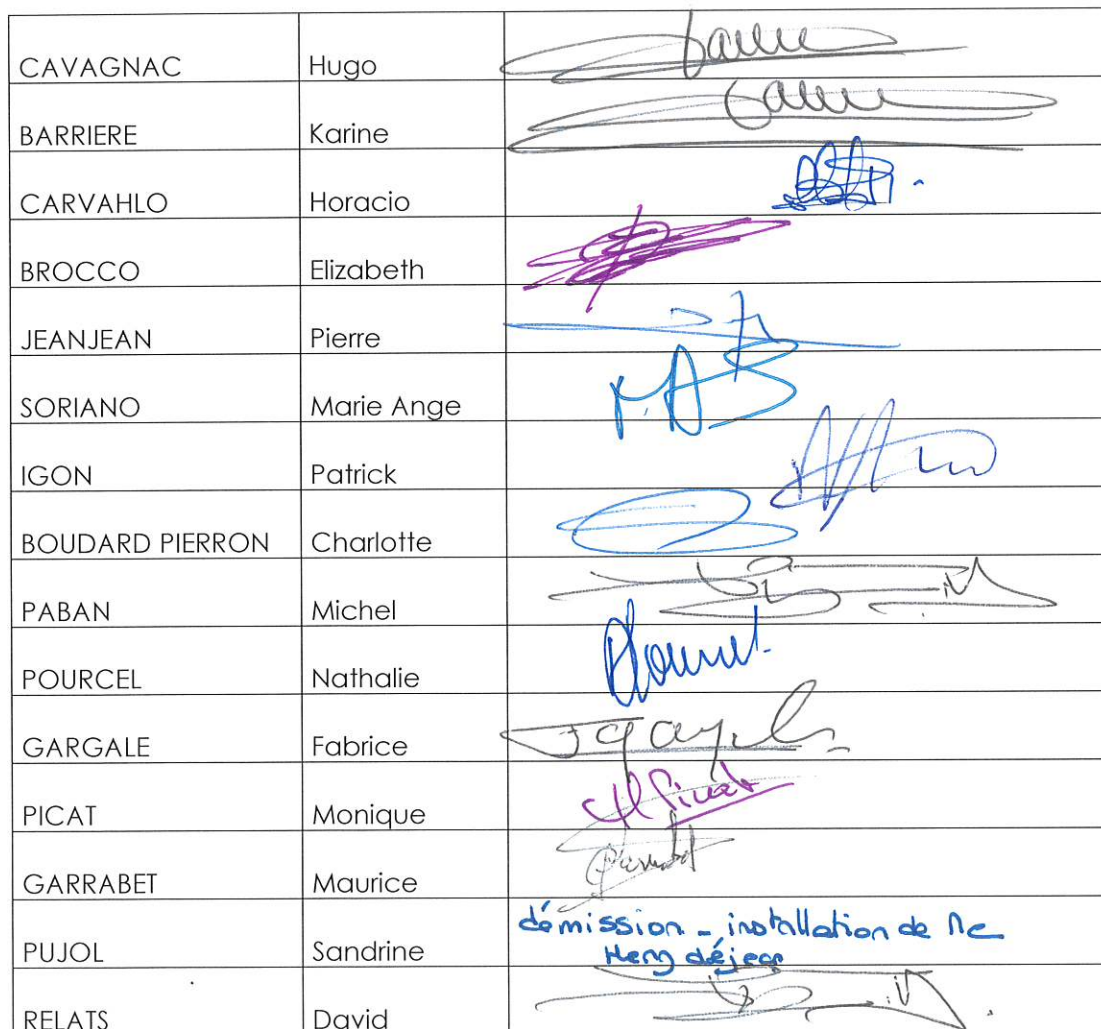 CAVAGNAC Hugo
BARRIERE Karine
CARVAHLO Horacio
BROCCO Elizabeth
JEANJEAN Pierre
SORIANO Marie Ange
IGON Patrick
BOUDARD PIERRON Charlotte
PABAN Michel
POURCEL Nathalie
GARGALE Fabrice
PICAT Monique
GARRABET Maurice
démission - installation de
PUJOL Sandrine
RELATS David